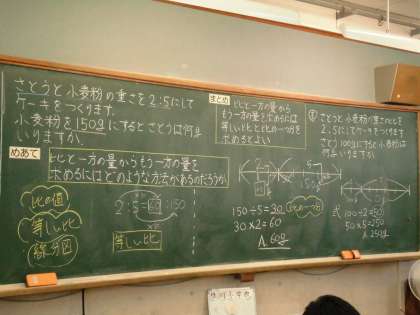 さとうと小麦粉の重さを2:5にして
ケーキをつくります。
小麦粉を150gにするとさとうは何g
いりますか。
めあて
比と一方の量からもう一方の量を
求めるにはどのような方法があるのだろうか
比の値
等しい比
線分図
2:5=60:150
等しい比
まとめ
比と一方の量から
もう一方の量を求めるには
等しい比と比の一つ分を
求めるとよい
2
5
150g
150÷5=30
比の一つ分
30×2=60
A. 60g
さとうと小麦粉の重さの比を
2:5にしてケーキをつくります
さとう100gにすると小麦粉は
何gいりますか
式
100÷2=50
50×5=250
A. 250g